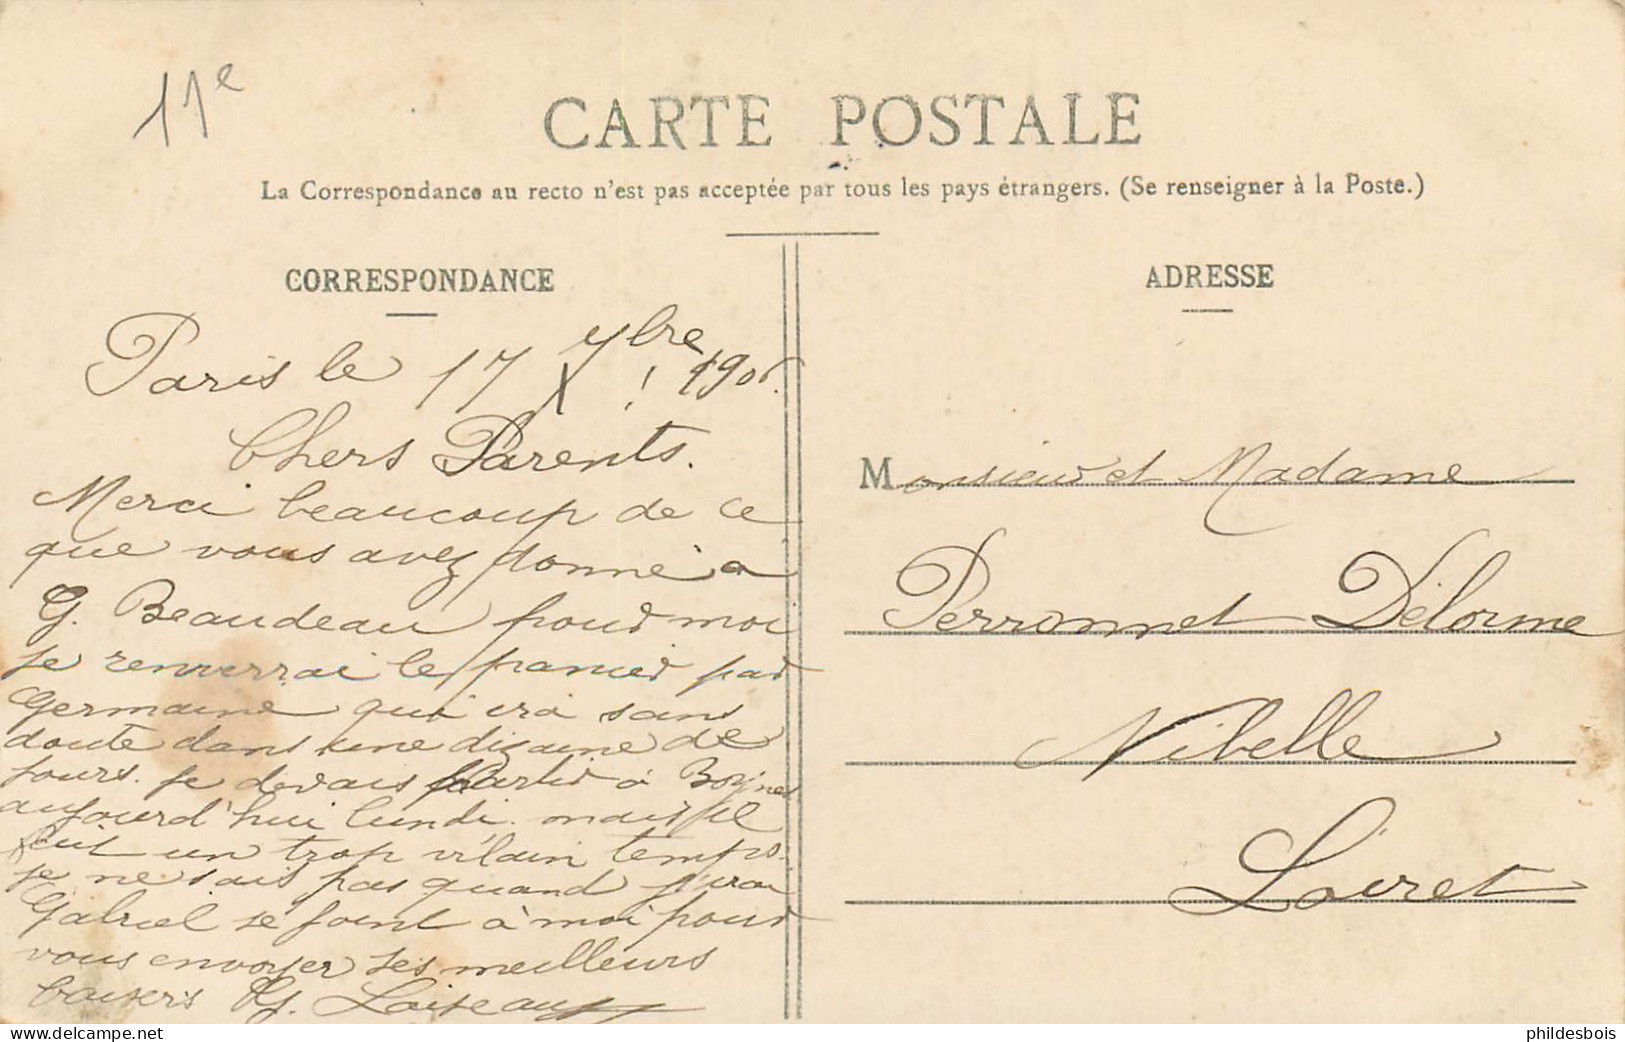 11e
CARTE POSTALE
La Correspondance au recto n'est pas acceptée par tous les pays étrangers. (Se renseigner à la Poste.)
CORRESPONDANCE
Paris le 17 7bre 1906.
Chers Parents.
Merci beaucoup de ce
que vous avez donné à
G. Beaudeau pour moi
je renverrai le panier par
Germaine qui ira sans
doute dans une dizaine de
jours. je devais partir à Boynes
aujourd'hui lundi. mais il
fait un trop vilain temps.
je ne sais pas quand j'irai
Gabriel se joint à moi pour
vous envoyer ses meilleurs
baisers G. Loiseau
ADRESSE
Monsieur et Madame
Perronnet Délorme
Nibelle
Loiret
phildesbois